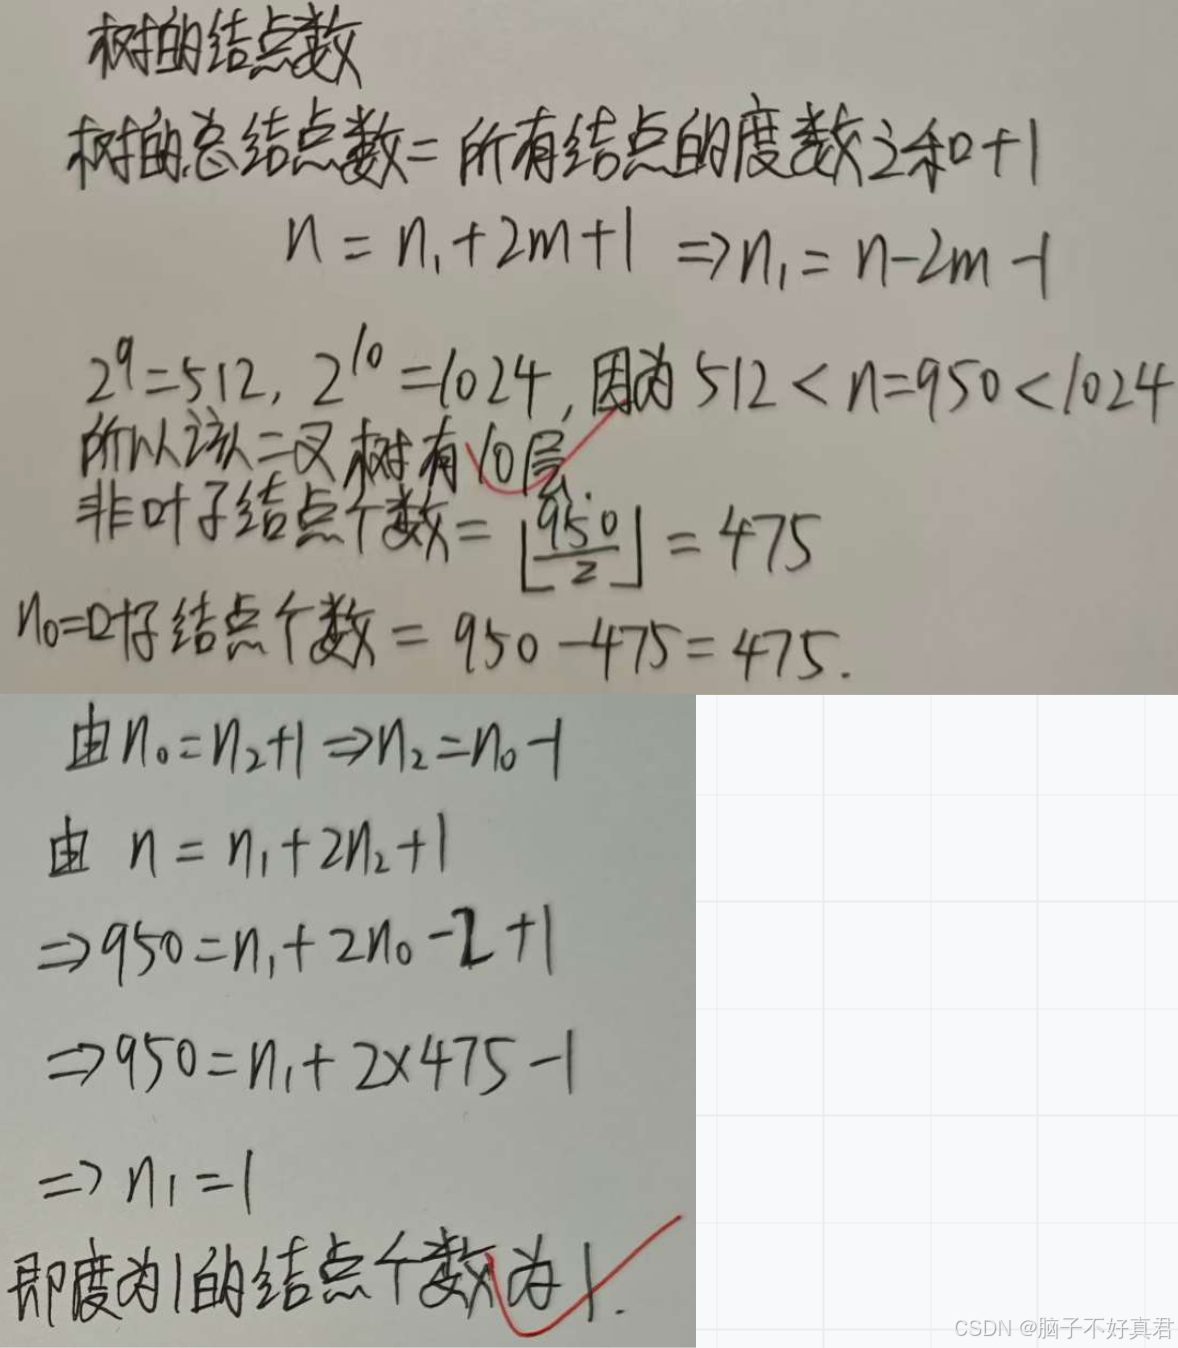 树的结点数
树的总结点数=所有结点的度数之和+1
n = n₁+2m+1 ⇒n₁= n-2m-1
2⁹=512, 2¹⁰=1024, 因为 512 < n=950 <1024
所以该二叉树有10层
非叶子结点个数= ⌊950/2⌋ = 475
n₀=叶子结点个数= 950-475=475.
由n₀=n₂+1⇒n₂=n₀-1
由 n = n₁+2n₂+1
⇒950=n₁+2n₀-2+1
⇒950=n₁+2×475-1
⇒n₁=1
即度为1的结点个数为1.
CSDN @脑子不好真君